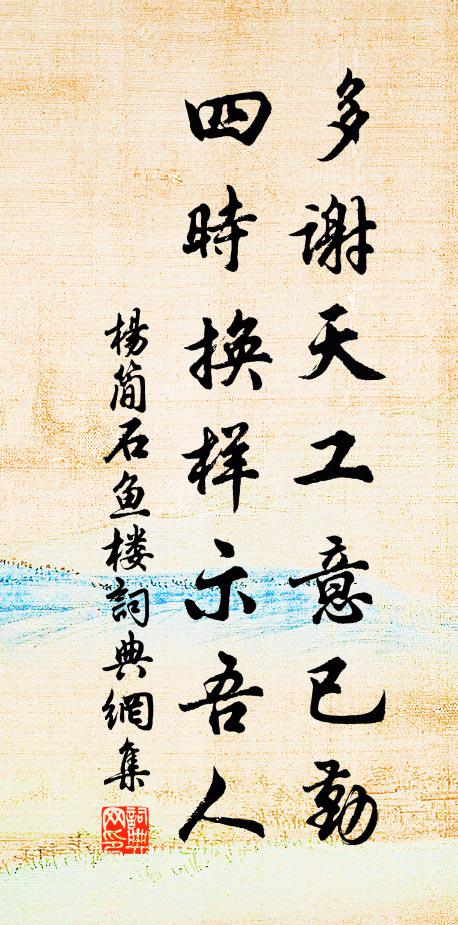 多謝天工意已勤
四時換样示吾人
楊简石鱼楼詞典網集
詞典网印